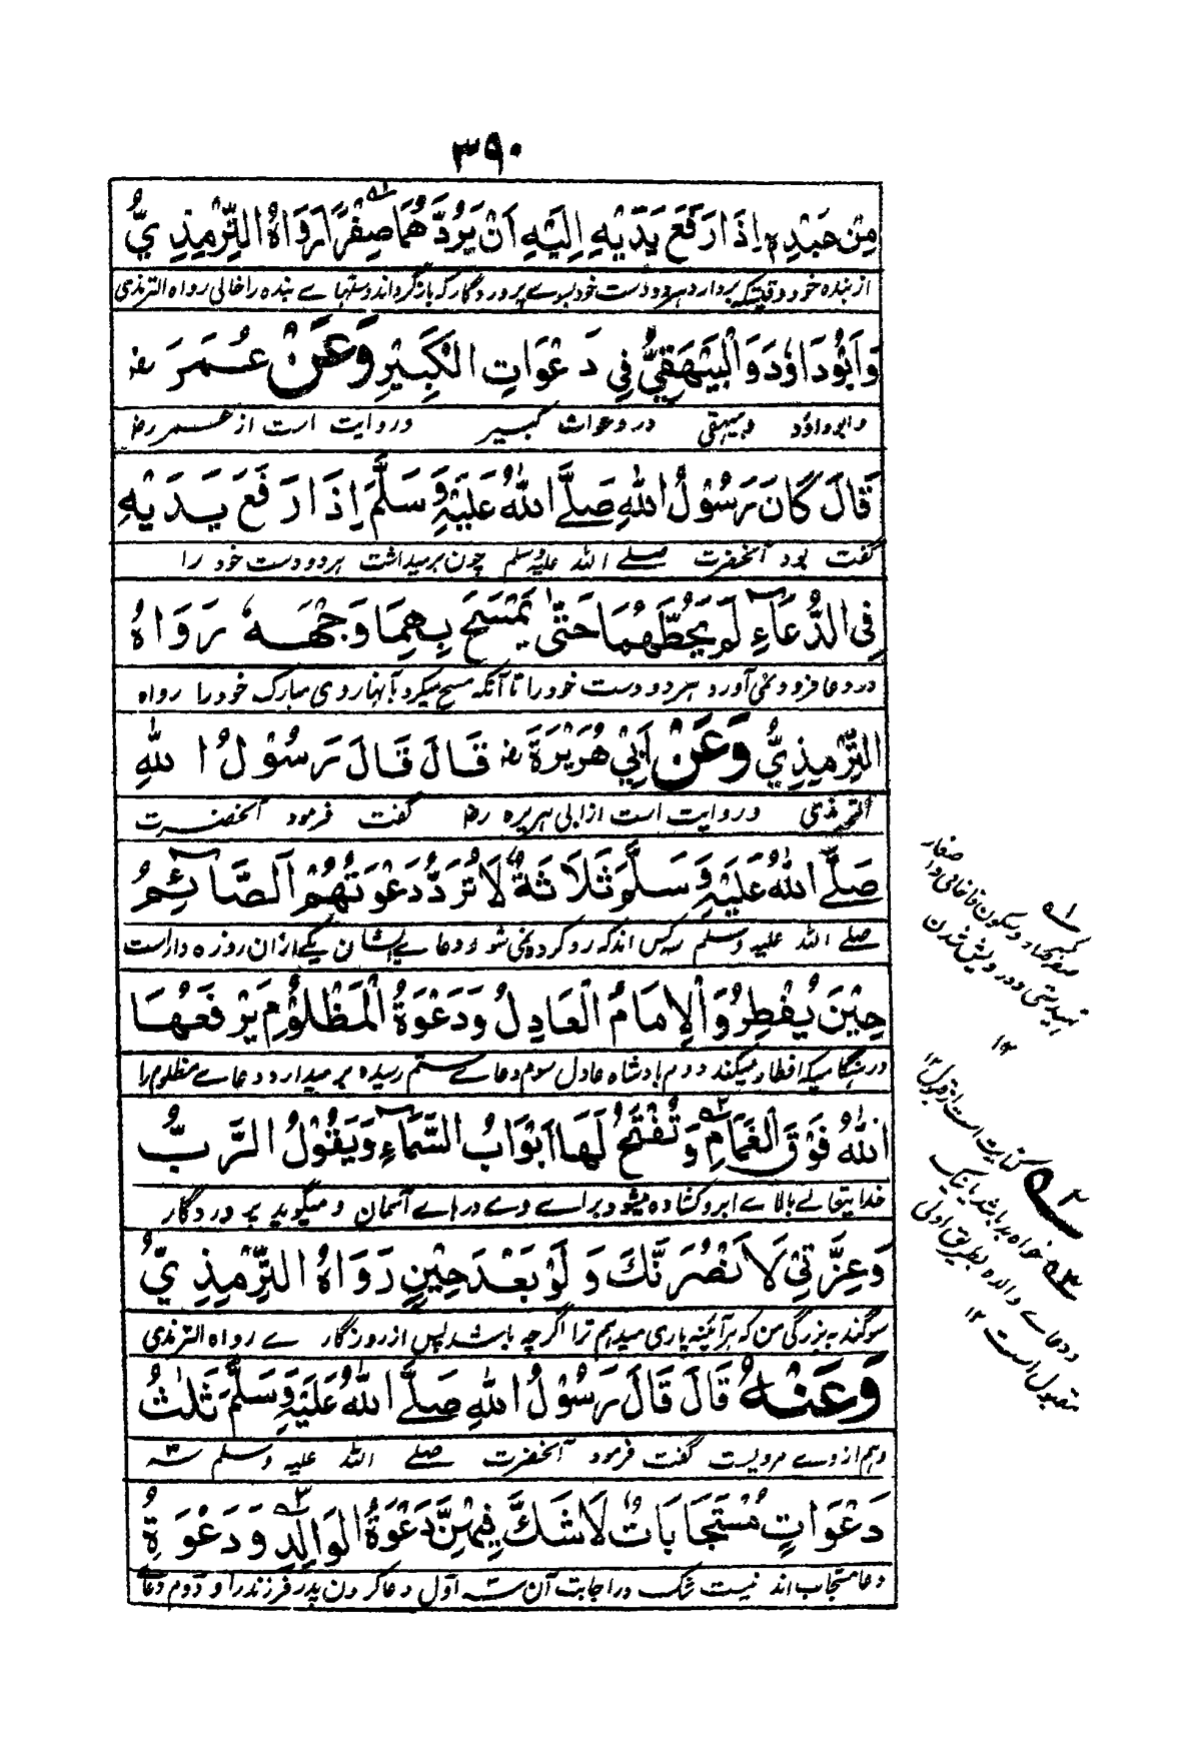 ۳۹۰
مِنْ عَبْدِهٖ اِذَا رَفَعَ يَدَيْهِ اِلَيْهِ اَنْ يَرُدَّهُمَا صِفْرًا رَوَاهُ التِّرْمِذِيُّ
از بنده خود وقتیکه بردارد هر دو دست خود بسوے پروردگار که بازگرداند دستهاے بنده را خالی رواه الترمذی
وَاَبُوْدَاوٗدَ وَالْبَيْهَقِيُّ فِي دَعَوَاتِ الْكَبِيْرِ وَعَنْ عُمَرَ رضـ
وابوداؤد وبیهقی در دعوات کبیر و روایت است از عمر رضـ
قَالَ كَانَ رَسُوْلُ اللّٰهِ صَلَّے اللّٰهُ عَلَيْهِ وَسَلَّمَ اِذَا رَفَعَ يَدَيْهِ
گفت بود آنحضرت صلے الله علیه وسلم چون برمیداشت هر دو دست خود را
فِي الدُّعَاءِ لَمْ يَحُطَّهُمَا حَتّٰى يَمْسَحَ بِهِمَا وَجْهَهٗ رَوَاهُ
در دعا فرود نمی آورد هر دو دست خود را تا آنکه مسح میکرد بآنها روی مبارک خود را رواه
التِّرْمِذِيُّ وَعَنْ اَبِيْ هُرَيْرَةَ رضـ قَالَ قَالَ رَسُوْلُ اللّٰهِ
الترمذی و روایت است از ابی هریره رضـ گفت فرمود آنحضرت
صَلَّے اللّٰهُ عَلَيْهِ وَسَلَّمَ ثَلَاثَةٌ لَا تُرَدُّ دَعْوَتُهُمْ اَلصَّائِمُ
صلے الله علیه وسلم سه کس اند که رد کرده نمی شود دعاے ایشان یکے ازان روزه دار است
حِيْنَ يُفْطِرُ وَالْاِمَامُ الْعَادِلُ وَدَعْوَةُ الْمَظْلُوْمِ يَرْفَعُهَا
در هنگامیکه افطار میکند دوم بادشاه عادل سوم دعاے ستم رسیده برمیدارد دعاے مظلوم را
اللّٰهُ فَوْقَ الْغَمَامِ وَتُفْتَحُ لَهَا اَبْوَابُ السَّمَاءِ وَيَقُوْلُ الرَّبُّ
خدایتعالے بالاے ابر و کشاده میشود براے وے درهاے آسمان و میگوید پروردگار
وَعِزَّتِيْ لَاَنْصُرَنَّكَ وَلَوْ بَعْدَ حِيْنٍ رَوَاهُ التِّرْمِذِيُّ
سوگند به بزرگی من که هر آئینه یاری میدهم ترا اگرچه باشد پس از روزگارے رواه الترمذی
وَعَنْهُ قَالَ قَالَ رَسُوْلُ اللّٰهِ صَلَّے اللّٰهُ عَلَيْهِ وَسَلَّمَ ثَلٰثُ
وهم از وے مرویست گفت فرمود آنحضرت صلے الله علیه وسلم سه
دَعَوَاتٍ مُسْتَجَابَاتٌ لَا شَكَّ فِيْهِنَّ دَعْوَةُ الْوَالِدِ وَدَعْوَةُ
دعا مستجاب اند نیست شک در اجابت آن سه اوّل دعا کردن پدر فرزند را و دوم دعاے
۱ه
صفر بکسر صاد و سکون فا
تهیدستی و درویش شدن
۱۲
۲ه کنایت است از قبول ۱۲
۳ه خواه بد باشد یا نیک
و دعاے والده بطریق اولی
مقبول است ۱۲